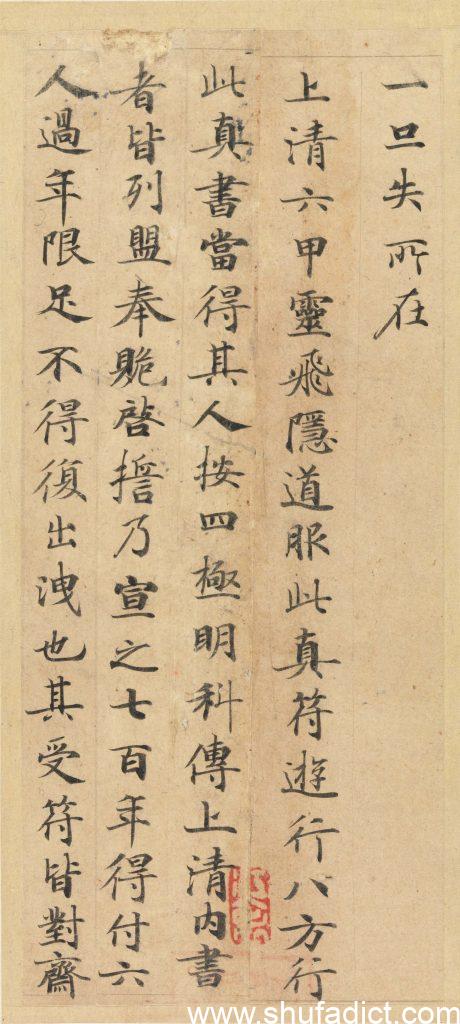 一旦失所在
上清六甲靈飛隱道服此真符遊行八方行
此真書當得其人按四極明科傳上清內書
者皆列盟奉跪啓誓乃宣之七百年得付六
人過年限足不得復出洩也其受符皆對齋
www.shufadict.com